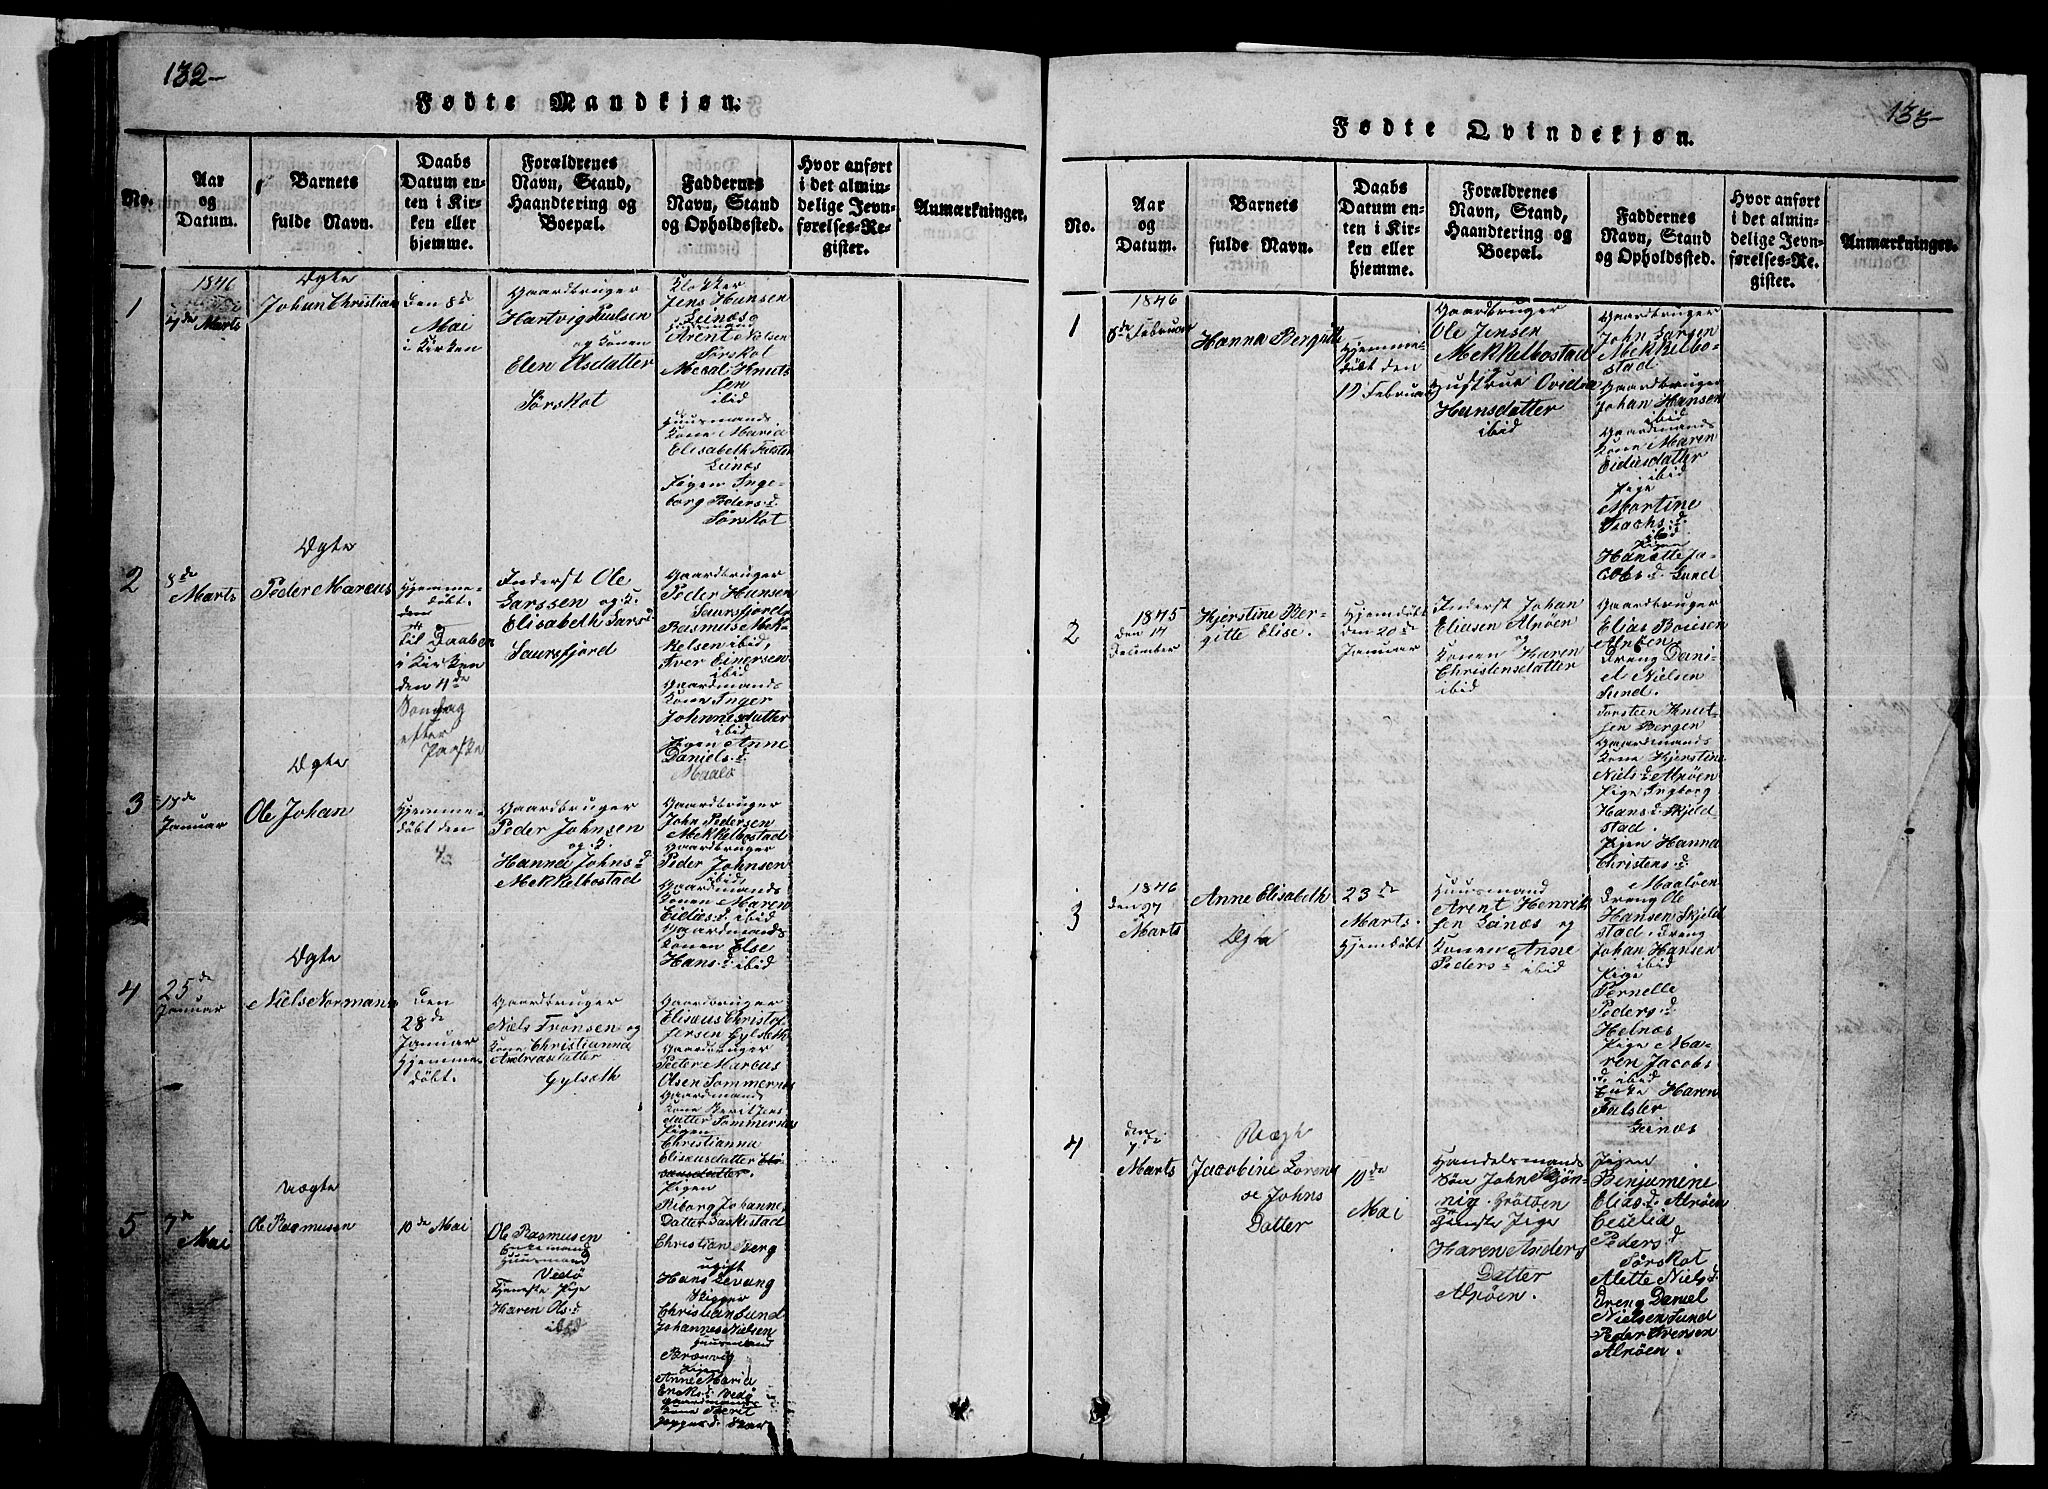 132-
Fødte Mandkjøn.
No.
Aar
og
Datum.
Barnets
fulde Navn.
Daabs
Datum en-
ten i Kir-
ken eller
hjemme.
Forældrenes
Navn, Stand,
Haandtering og
Boepæl.
Faddernes
Navn, Stand
og Opholdssted.
Hvor anført
i det almin-
delige Jevn-
førelses-Re-
gister.
Anmærkninger.
1
1846
4de Marts
Ægte
Johan Christian
den 8de
Mai
i Kirken
Gaardbruger
Hartvig Paulsen
og Konen
Elen Olsdatter
Sørskot
Klokker
Jens Hansen
Leinæs
Huusmand
Arent Nielsen
Sørskot
Mesal Knuts
sen
ibid
Huusmands
Kone Maria
Elisabeth Falster
Leinæs
Pigen Inge-
borg Peders.d.
Sørskot
2
8de
Marts
Ægte
Peder Marcus
Hjemme-
døbt.
den
til Daaben
i Kirken
den 4de
Søndag
efter
Paaske
Inderst Ole
Larssen og K.
Elisabeth Larsd
Laursfjord
Gaardbruger
Peder Hansen
Laursfjord
Rasmus Mek-
kelsen ibid,
Iver Einersen
ibid
Gaardmands
Kone Inger
Johnnesdatter
ibid
Pigen Anne
Daniels.d.
Maalø
3
18de
Januar
Ægte
Ole Johan
Hjemme-
døbt den
Gaardbruger
Peder Johnsen
og K.
Hanna Johnsd
Mekkelbostad
Gaardbruger
John Pedersen
Mekkelbostad
Gaardbruger
Peder Johnsen
ibid,
Gaardmands
Konen Maren
Eidias.d. ibid
Gaardmands
Konen Else
Hans.d. ibid
4
25de
Januar
Ægte
Niels Normann
den
28de
Januar
Hjemme-
døbt.
Gaardbruger
Niels Tronsen og
Kone Christianna
Andreasdatter
Gylseth
Gaardbruger
Elisæus Christof-
fersen Gylseth
Gaardbruger
Peter Marcus
Olsen Sommernes
Gaardmands
Kone Berit Jens
datter Sommernes
Pigen
Christianna
Elisæusdatter
Pigen
Riborg Johannes
Datter Laskestad
5
7de
Mai
Uægte
Ole Rasmusen
10de Mai
Ole Rasmusen
Enkemand
Huusmand
Vedø
Tjeneste Pige
Karen Ols.d.
ibid
Christian Berg
ugift
Hans Levang
Skipper
Christian Sund
Johannes Nielsen
Huusmand
Brænvig
Pigen
Anne Maria
Enoks.d. Vedø
Gaardmands
Kone Berit
133-
Fødte Qvindekjøn.
No.
Aar
og
Datum.
Barnets
fulde Navn.
Daabs
Datum en-
ten i Kir-
ken eller
hjemme.
Forældrenes
Navn, Stand,
Haandtering og
Boepæl.
Faddernes
Navn, Stand
og Opholdssted.
Hvor anført
i det almin-
delige Jevn-
førelses-Re-
gister.
Anmærkninger.
1
1846
8de Februar
Hanna Bergitte
Hjemme-
døbt den
19 Februar
Gaardbruger
Ole Jensen
Mekkelbostad
Hustrue Ovidia
Hansdatter
ibid
Gaardbruger
John Larsen
Mekkelbo-
stad.
Gaardbruger
Johan Hansen
ibid
Gaardmands
Kone Maren
Eidiasdatter
ibid
Pige
Martine
Isachs.d.
ibid
Pigen
Hanette Ja-
cobs.d. Lund
2
1845
den 14
December
Kjerstine Ber-
gitte Elise.
Hjemdøbt
den 20de
Januar
Inderst Johan
Eliasen Alpøen
og
Konen Karen
Christensdatter
ibid
Gaardbruger
Elias Boiesen
Alpøen
Dreng Dani-
el Nielsen
Sund.
Torsteen Knut-
sen Bergen
Gaardmands
Kone Kjerstine
Niels.d. Alpøen
Pige Ingborg
Hans.d. Skjeld
stad.
Pigen Hanna
Christens.d.
Maaløen
3
1846
den 27
Marts
Anne Elisabeth
Ægte
23de
Marts.
Hjemdøbt
Huusmand
Arent Henrik
sen Leinæs og
Konen Anne
Pedersd ibid
Dreng Ole
Hansen Skjeld
stad. Dreng
Johan Hansen
ibid
Pige
Pernelle
Peders.d.
Helnæs
Pige Ma-
ren Jacobs
d. ibid
Enke Karen
Falster
Leinæs
4
den
7de
Marts
Uægte
Jacobine Loren-
se Johns
Datter
10de
Mai
Handelsmands
Søn John Kjøn-
nig Grøtøen
Tjeneste Pige
Karen Anders
Datter
Alpøen.
Pigen
Benjamine
Elias.d. Alpøen
Ceselia
Peders.d.
Sørskot
Alette Niels.d.
Dreng Daniel
Nielsen Sund
Peder Arensen
Alpøen.